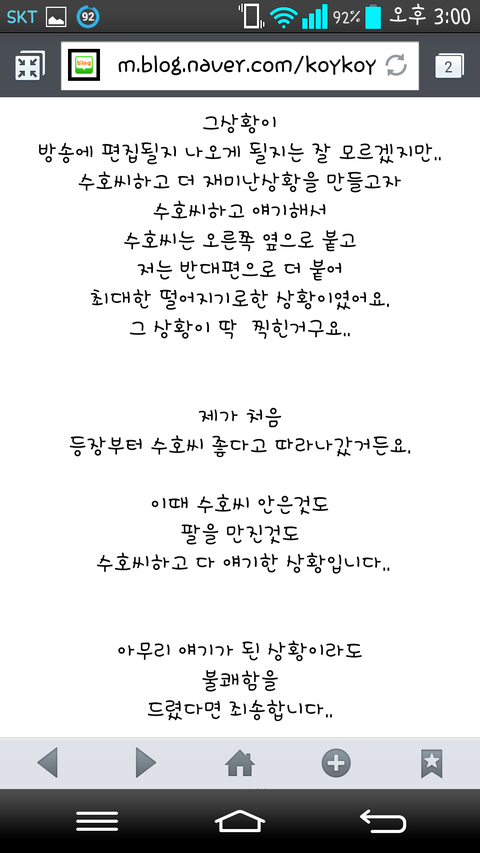 SKT 92 92% 오후 3:00
blog m.blog.naver.com/koykoy 2
그상황이
방송에 편집될지 나오게 될지는 잘 모르겠지만..
수호씨하고 더 재미난상황을 만들고자
수호씨하고 얘기해서
수호씨는 오른쪽 옆으로 붙고
저는 반대편으로 더 붙어
최대한 떨어지기로한 상황이였어요.
그 상황이 딱 찍힌거구요..
제가 처음
등장부터 수호씨 좋다고 따라나갔거든요.
이때 수호씨 안은것도
팔을 만진것도
수호씨하고 다 얘기한 상황입니다..
아무리 얘기가 된 상황이라도
불쾌함을
드렸다면 죄송합니다..